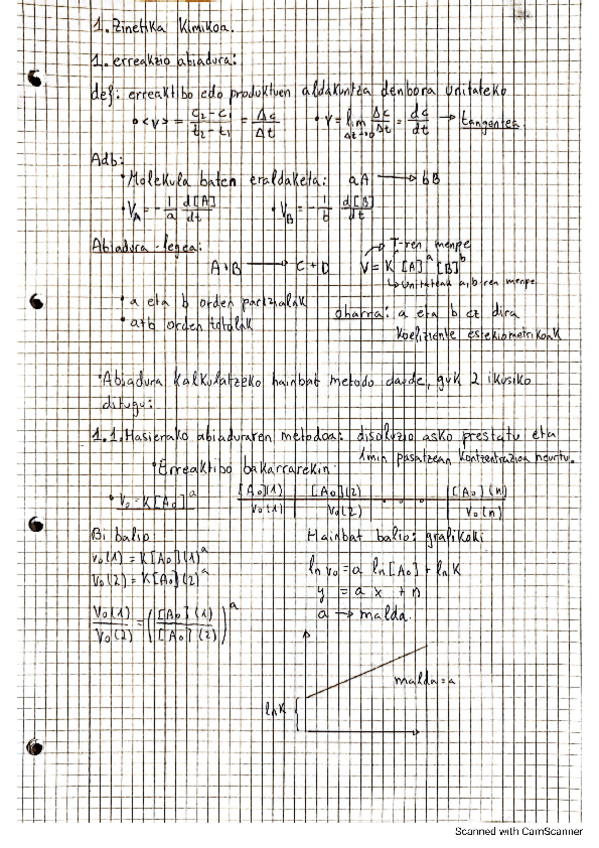 1. Zinetika Kimikoa.
1. erreakzio abiadura:
def: erreaktibo edo produktuen aldakuntza denbora unitateko
• <v> = (c₂-c₁)/(t₂-t₁) = Δc/Δt • v = lim Δt→0 Δc/Δt = dc/dt → tangentea.
Adb:
• Molekula baten eraldaketa: aA → bB
• V_A = -1/a d[A]/dt • V_B = -1/b d[B]/dt
Abiadura-legea: T-ren menpe
A+B → C+D V = K [A]ᵃ [B]ᵇ
↳ unitateak a,b-ren menpe
• a eta b orden partzialak
• a+b orden totalak
oharra: a eta b ez dira
koefiziente estekiometrikoak
• Abiadura kalkulatzeko hainbat metodo daude, guk 2 ikusiko
ditugu:
1.1. Hasierako abiaduraren metodoa: disoluzio asko prestatu eta
1min pasatzean kontzentrazioa neurtu.
• Erreaktibo bakarrarekin:
• V₀ = K[A₀]ᵃ
[A₀](1) [A₀](2) . . . [A₀](n)
V₀(1) V₀(2) V₀(n)
Bi balio:
v₀(1) = K[A₀](1)ᵃ
v₀(2) = K[A₀](2)ᵃ
V₀(1)/V₀(2) = ([A₀](1)/[A₀](2))ᵃ
Hainbat balio: grafikoki
ln v₀ = a ln[A₀] + ln K
y = a x + n
a → malda.
malda = a
ln K
Scanned with CamScanner